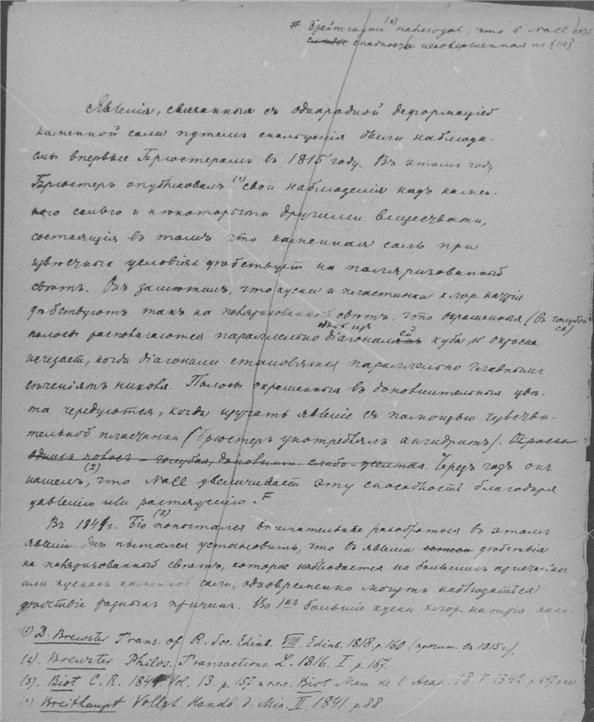 # Брейтгаупт (4) наблюдал, что в NaCl есть
спайность несовершенная по {110}
Явленія, связанныя съ однародной деформаціей
каменной соли путемъ сжатія были наблюда-
емы впервые Брюстеромъ въ 1815 году. Въ этомъ году
Брюстеръ опубликовалъ (1) свои наблюденія надъ камен-
ною солью и нѣкоторыми другими веществами,
состоящія въ томъ что каменная соль при
условіяхъ дѣйствуетъ на поляризованный
свѣтъ. Онъ замѣтилъ, что куски и пластинки хлор. натрія
дѣйствуютъ такъ на поляризованный свѣтъ, что окрашенныя (въ голубой
полосы располагаются параллельно діагоналей куба и окраска
исчезаетъ, когда діагонали становятся параллельно главнымъ
сѣченіямъ николя. Полосы окрашенныя въ дополнительные цвѣ-
та чередуются, когда изучать явленіе съ помощью чувстви-
тельной пластинки (Брюстеръ употреблялъ ангидритъ). Окраска
однихъ полосъ – голубая, слабо-желтая. Черезъ годъ онъ
нашелъ, (2) что NaCl увеличиваетъ эту способность благодаря
давленію или растяженію. F
Въ 1841г. Біо (3) попытался внимательнѣе разобраться въ этомъ
явленіи. Онъ пытался установить, что въ явленіи дѣйствія
на поляризованный свѣтъ, которое наблюдается на большихъ
или кускахъ каменной соли, одновременно могутъ наблюдаться
дѣйствіе разныхъ причинъ. Во 1хъ большіе куски хлор. натрія
(1) D. Brewster Trans. of R. Soc. Edinb. VIII. Edinb. 1818. p. 160 (прочит. въ 1815 г.).
(2). Brewster Philos. Transactions L. 1816. I. p. 157.
(3). Biot C. R. 1841 Vol. 13. p. 157 Biot Mem de l'Acad. 18. P. 1842.
(4) Breithaupt Vollst. Handb. d. Min. II 1841. p. 88